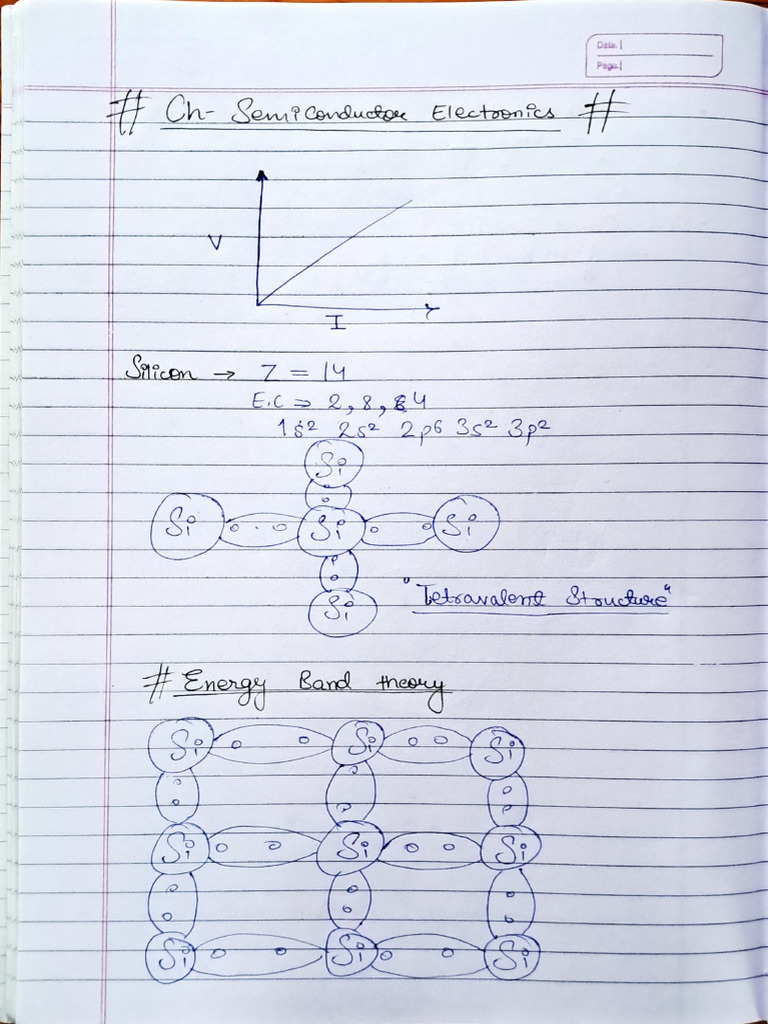 Date.
Page.
# Ch- Semiconductor Electronics #
V
I
Silicon → Z = 14
E.C ⇒ 2, 8, 4
1s² 2s² 2p⁶ 3s² 3p²
Si
Si Si Si
Si
"Tetravalent Structure"
# Energy Band theory
Si Si Si
Si Si Si
Si Si Si